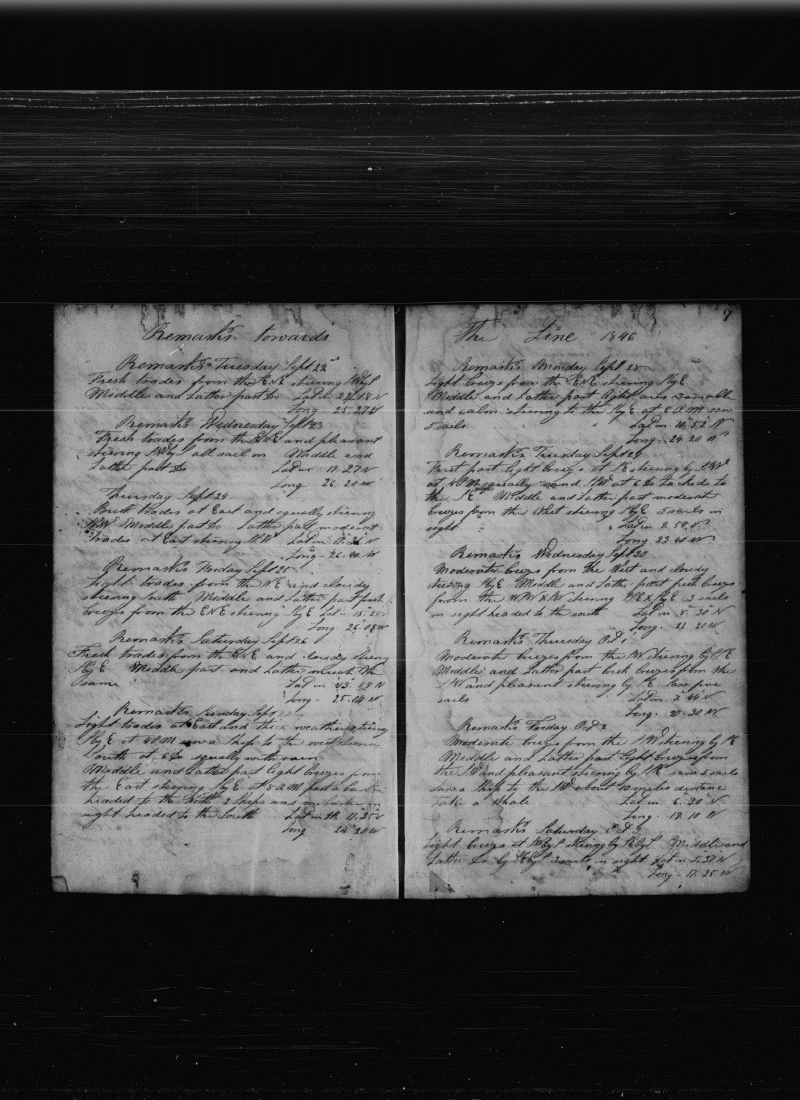 Remarks towards
Remarks Tuesday Sept 22d
Fresh trades from the ENE steering
Middle and Latter part Do Lat in 22.18 N
Long - 25.27 W
Remarks Wednesday Sept 23
Fresh trades from the ENE and pleasant
steering all sail on Middle and
Latter part Do Lat in 19.27 N
Long 26.20 W
Thursday Sept 24
Brisk trades at East and squally steering
Middle part Do Latter part moderate
trades at East steering Lat in
Long - 26.40 W
Remarks Friday Sept 25
Light trades from the NE and cloudy
steering South Middle and Latter part fresh
breezes from the ENE steering SbyE Lat
Long 26.08 W
Remarks Saturday Sept 26
Fresh trades from the ENE and cloudy steering
SbyE Middle part and Latter much the
same Lat in 13.19 N
Long - 25.04 W
Remarks Sunday Sept
Light trades at East and thick weather steering
SbyE at 4 PM saw a Ship to the west
South at 6 Do squally with rain
Middle and Latter part light breezes from
the East steering by E at 8 AM past a bark
headed to the North 2 Ships and one bark in
sight headed to the South Lat in 11.35 N
Long 24.20 W
7
The Line 1846
Remarks Monday Sept 28
Light breezes from the ENE steering SbyE
Middle and Latter part light airs
and calm steering to the SbyE at 6 AM saw
5 sails. Lat in 10.52 N
Long - 24.20 W
Remarks Tuesday Sept 29
First part light breezes at steering by
at 4 PM squally wind at 6 Do tacked to
the Middle and Latter part moderate
breezes from the West steering SbyE 5 sails in
sight Lat in 9.59 N
Long 23.40 W
Remarks Wednesday Sept 30
Moderate breezes from the West and cloudy
steering SbyE Middle and Latter part fresh breezes
from the steering 3 sails
in sight headed to the south Lat in 8.30 N
Long - 22.20 W
Remarks Thursday Oct 1
Moderate breezes from the steering by
Middle and Latter part brisk breezes from the
and pleasant steering by saw five
sails Lat in 7.44 N
Long - 20.30 W
Remarks Friday Oct 2
Moderate breezes from the steering by
Middle and Latter part light breezes from
the and pleasant steering by saw 5 sails
saw a Ship to the about 10 miles distance
take a whale Lat in 6.30 N
Long - 19.10 W
Remarks Saturday Oct 3
Light breezes at steering by Middle and
Latter Do by 3 sails in sight Lat in 5.37 N
Long - 17.25 W